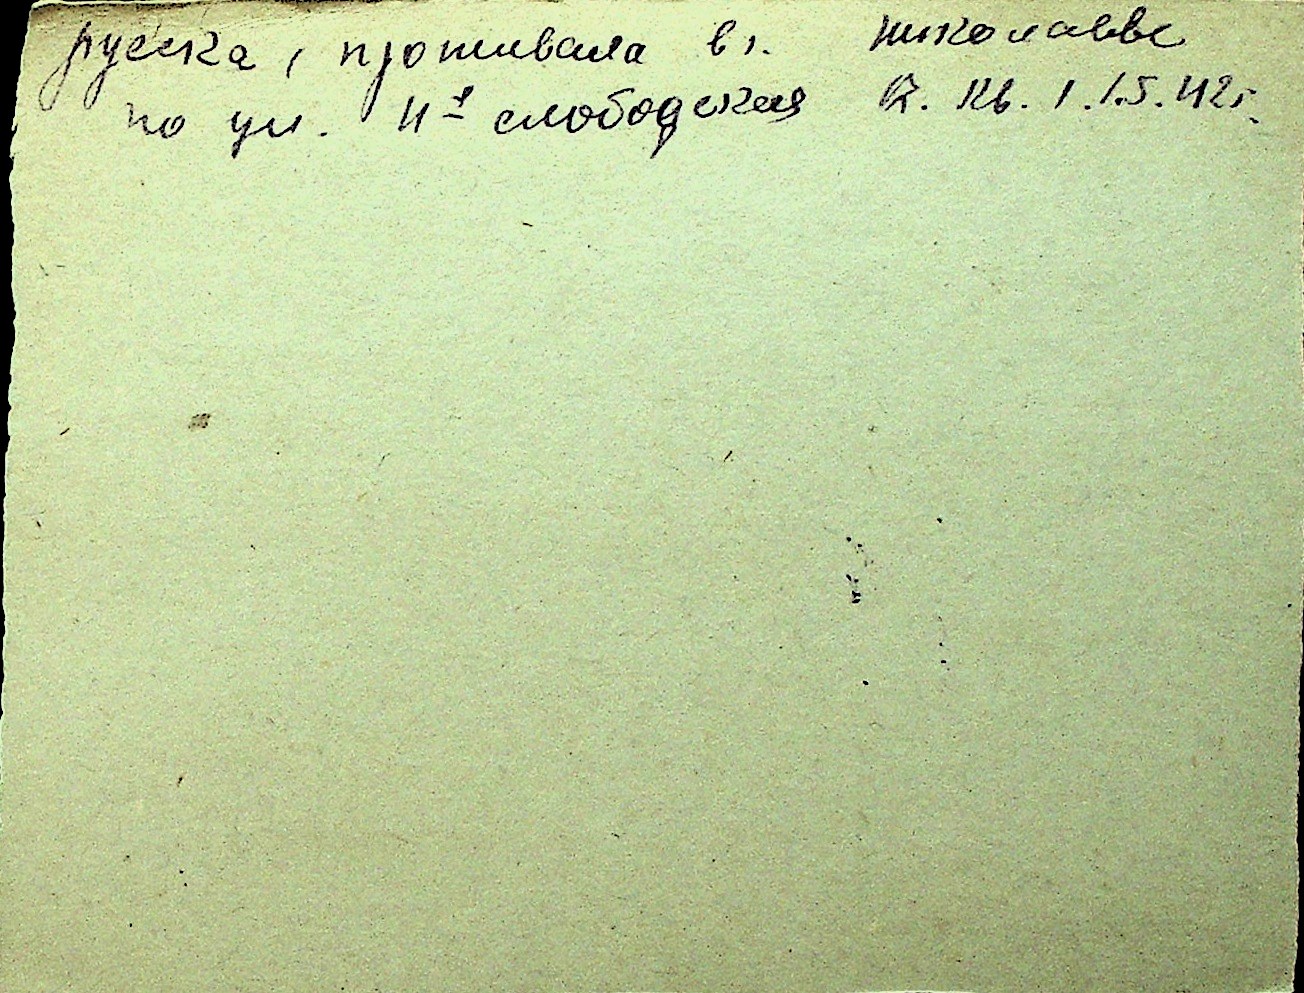 русска, проживала в г. николаеве
по ул. 4я слободская кв. 1. 1.5.42г.